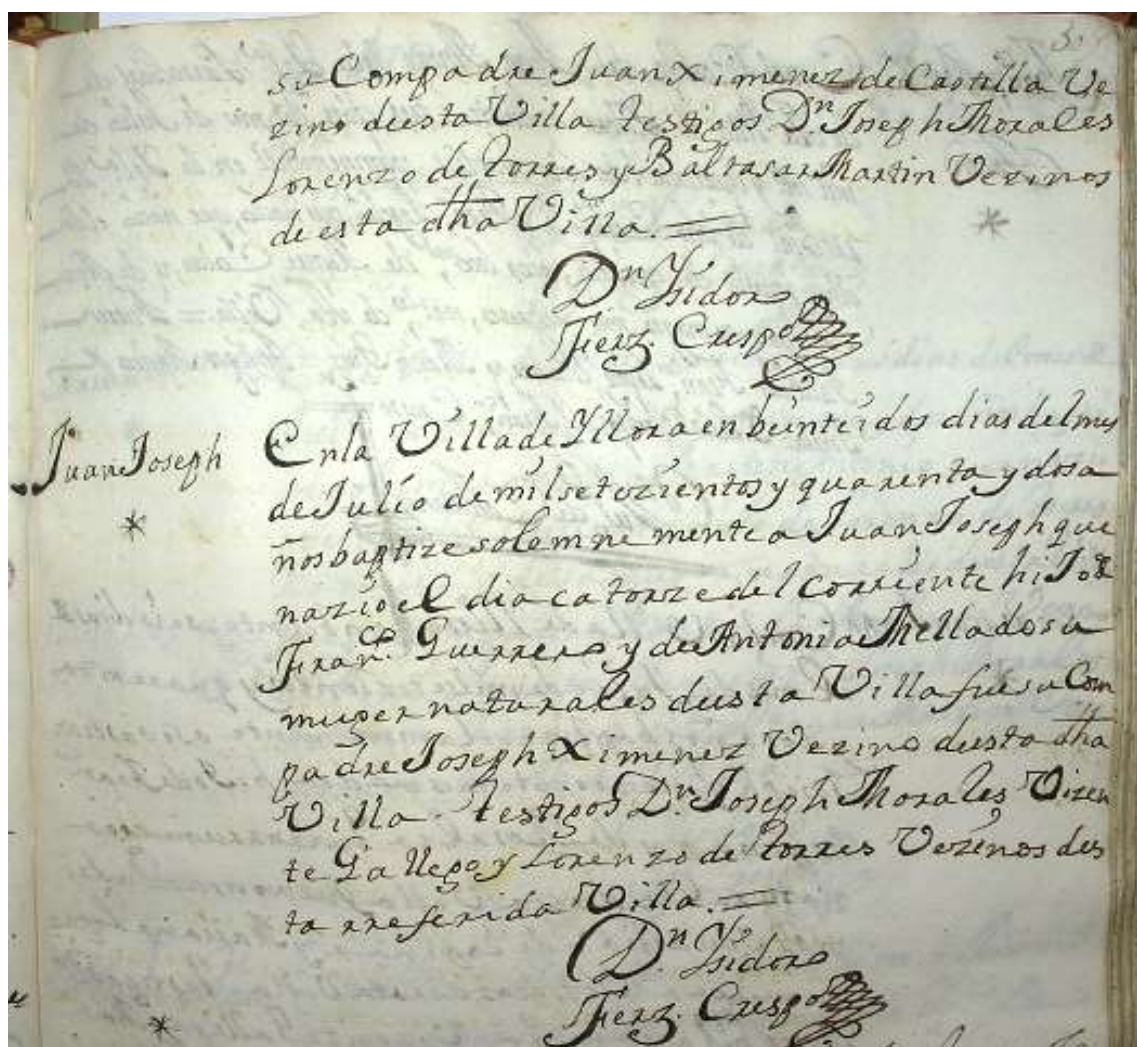 su Compadre Juan Ximenez de Castilla Ve
zino deesta Villa testigos Dn. Joseph Morales
Lorenzo de torres y Baltasar Martin Vezinos
de esta dha Villa. =
Dn Ysidoro
Ferz. Crespo
Juan Joseph
En la Villa de Yllora en beinte i dos dias del mes
de Julio de mil setezientos y quarenta y dos a
ños baptize solemne mente a Juan Joseph que
nazio el dia catorze del corriente hijo de
Franco. Guerrero y de Antonia Mellado su
muger naturales desta Villa fue su Com
padre Joseph Ximenez Vezino desta dha
Villa. testigos Dn. Joseph Morales Vizen
te Gallego y Lorenzo de torres Vezinos des
ta rreferida Villa. =
Dn Ysidoro
Ferz. Crespo